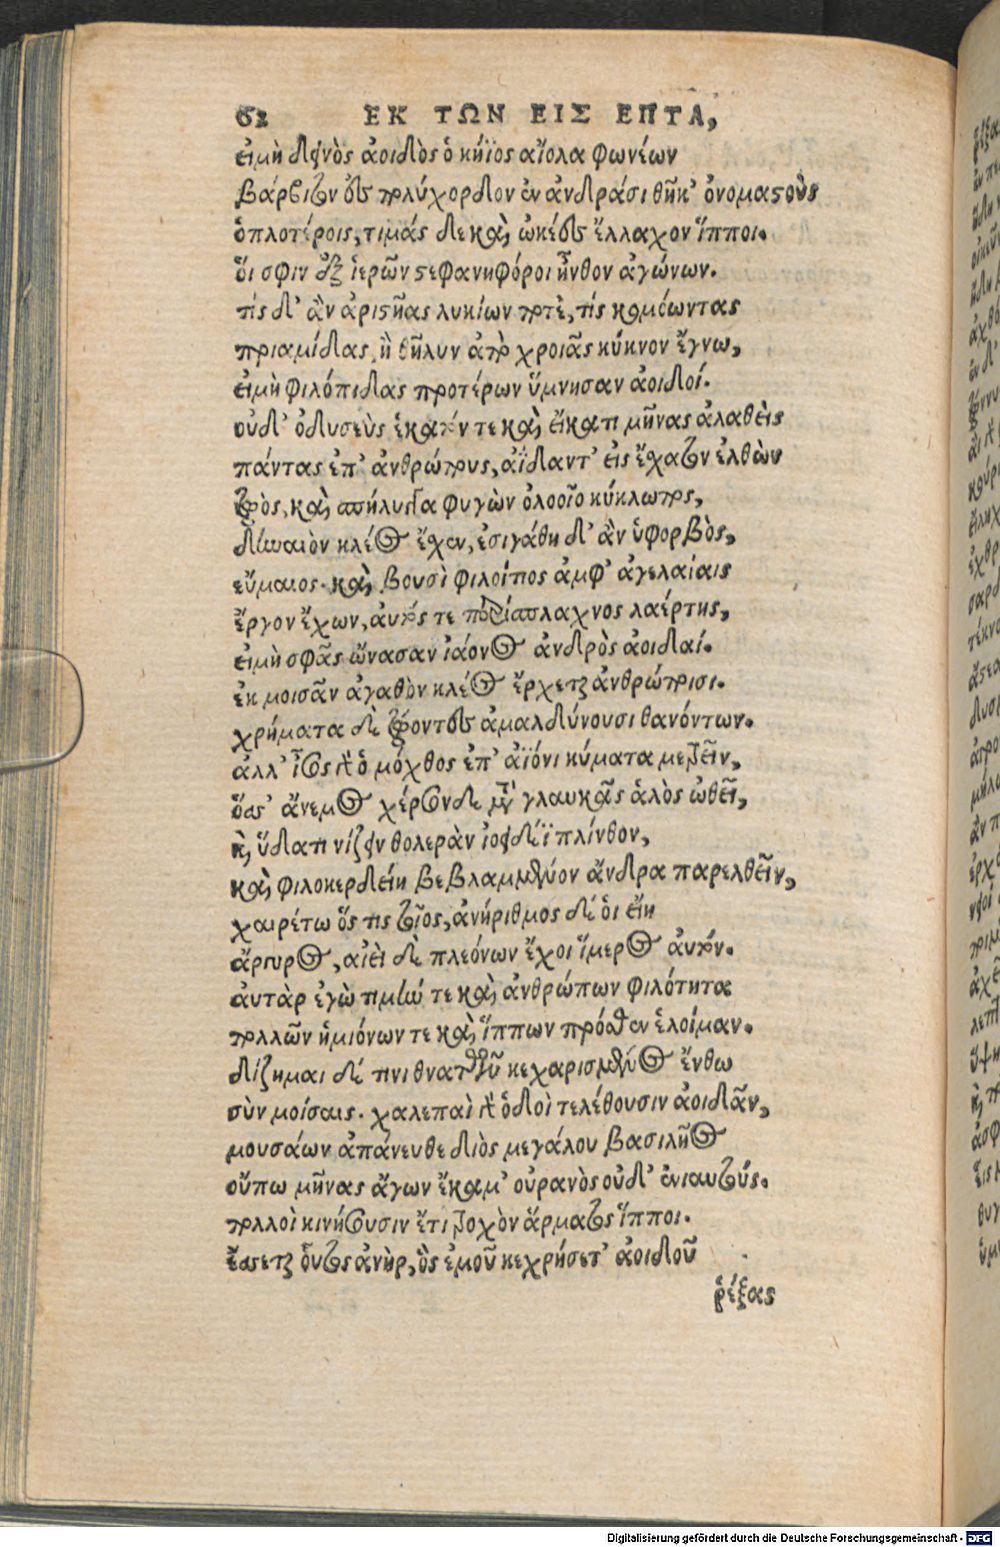 62 ΕΚ ΤΩΝ ΕΙΣ ΕΠΤΑ,
εἰμὴ δεινὸς ἀοιδὸς ὁ κήϊος αἴολα φωνέων
βάρβιτον ἐς πολύχορδον ἐν ἀνδράσι θῆκ' ὀνομαστοὺς
ὁπλοτέροις, τιμᾶς δὲ καὶ ὠκέες ἔλλαχον ἵπποι.
ὅι σφιν ἐξ ἱερῶν στεφανηφόροι ἦνθον ἀγώνων.
τίς δ' ἂν ἀριστῆας λυκίων ποτὲ, τίς κομόωντας
πριαμίδας, ἢ θῆλυν ἀπὸ χροιᾶς κύκνον ἔγνω,
εἰμὴ φιλόπιδας προτέρων ὕμνησαν ἀοιδοί.
οὐδ' ὀδυσεὺς ἑκατόν τε καὶ εἴκατι μῆνας ἀλαθεὶς
πάντας ἐπ' ἀνθρώπους, ἀΐδαντ' εἰς ἔχατον ἐλθὼν
ζωὸς, καὶ σπήλυγγα φυγὼν ὀλοοῖο κύκλωπος,
δηναιὸν κλέος ἔχεν, ἐσιγάθη δ' ἂν ὑφορβὸς,
εὔμαιος. καὶ βουσὶ φιλοίπος ἀμφ' ἀγελαίαις
ἔργον ἔχων, αὐτός τε περίσπλαχνος λαέρτης,
εἰμὴ σφᾶς ὤνασαν ἰάονος ἀνδρὸς ἀοιδαί.
ἐκ μοισᾶν ἀγαθὸν κλέος ἔρχεται ἀνθρώποισι.
χρήματα δὲ ζώοντες ἀμαλδύνουσι θανόντων.
ἀλλ' ἶσος γὰρ ὁ μόχθος ἐπ' ἀϊόνι κύματα μετρεῖν,
ὅσσ' ἄνεμος χέρσονδε μετὰ γλαυκᾶς ἁλὸς ὠθεῖ,
καὶ ὕδατι νίζειν θολερὰν ἰοειδέϊ πλίνθον,
καὶ φιλοκερδείῃ βεβλαμμένον ἄνδρα παρελθεῖν,
χαιρέτω ὅς τις τοῖος, ἀνήριθμος δέ ὁι εἴη
ἄργυρος, αἰεὶ δὲ πλεόνων ἔχοι ἵμερος αὐτόν.
αὐτὰρ ἐγὼ τιμήν τε καὶ ἀνθρώπων φιλότητα
πολλῶν ἡμιόνων τε καὶ ἵππων πρόσθεν ἑλοίμαν.
δίζημαι δέ τινι θνατῶν κεχαρισμένος ἔνθω
σὺν μοίσαις. χαλεπαὶ γὰρ ὁδοὶ τελέθουσιν ἀοιδᾶν,
μουσάων ἀπάνευθε διὸς μεγάλου βασιλῆος
οὔπω μῆνας ἄγων ἔκαμ' οὐρανὸς οὐδ' ἐνιαυτούς.
πολλοὶ κινήσουσιν ἔτι τροχὸν ἅρματος ἵπποι.
ἔσσεται οὗτος ἀνὴρ, ὃς ἐμοῦ κεχρήσετ' ἀοιδοῦ
ῥέξας
Digitalisierung gefördert durch die Deutsche Forschungsgemeinschaft - DFG